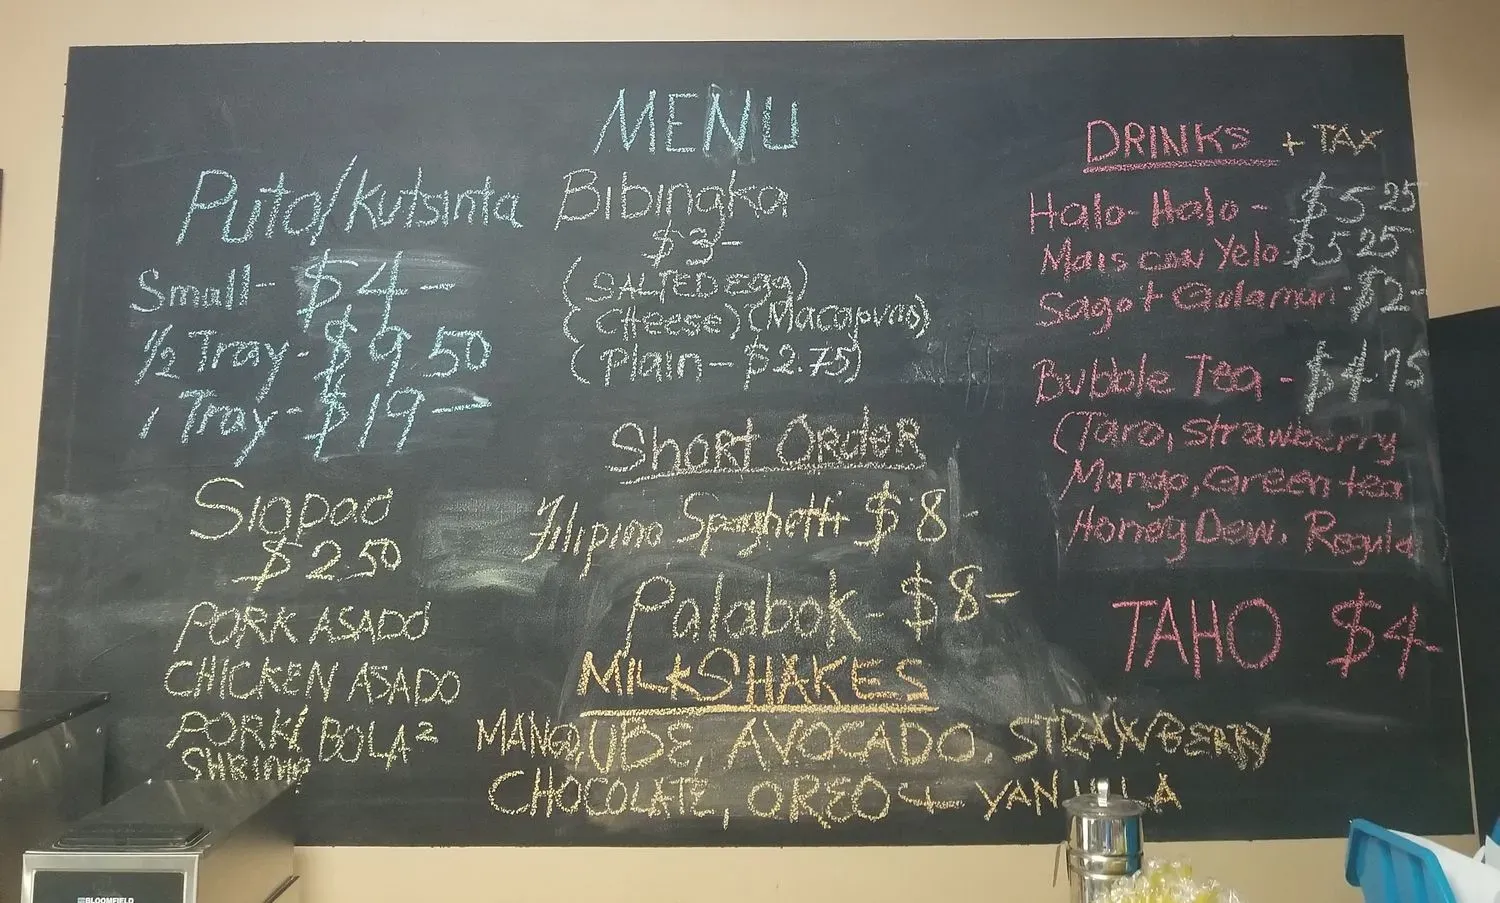 MENU
Puto/Kutsinta
Small- $4-
1/2 Tray- $9.50
1 Tray- $19-
Siopao
$2.50
PORK ASADO
CHICKEN ASADO
PORK/ BOLA²
SHRIMP
Bibingka
$3-
(SALTED EGG)
(Cheese) (Macapuno)
(Plain- $2.75)
Short Order
Filipino Spaghetti $8-
Palabok- $8-
MILKSHAKES
MANGO, UBE, AVOCADO, STRAWBERRY
CHOCOLATE, OREO + VANILLA
DRINKS + TAX
Halo-Halo- $5.25
Mais con Yelo- $5.25
Sago't Gulaman- $2-
Bubble Tea - $4.75
(Taro, strawberry
Mango, Green tea
Honey Dew. Regula
TAHO $4-
BLOOMFIELD